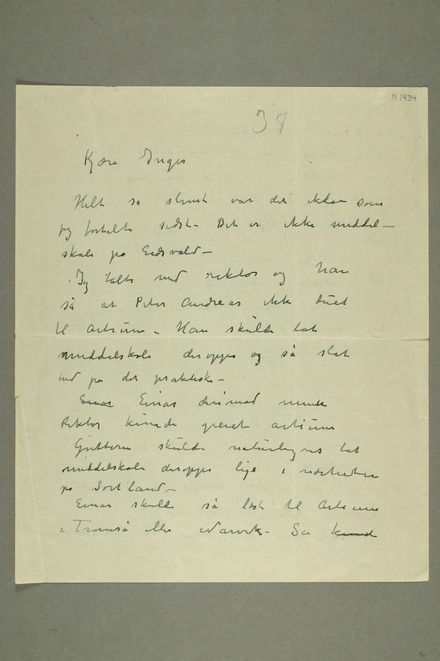 N 1434
38
Kjære Inger
Helt så slemt var det ikke som
jeg fortalte sidst. Det er ikke middel-
skole på Eidsvold–
Jeg talte med rektor og han
sa at Peter Andreas ikke duet
til artium. Han skulde tat
middelskole deroppe og så slåt
ind på det praktiske.
Einar Einar derimod mente
Rektor kunde greiet artium
Guttorm skulde naturligvis tat
middelskole deroppe like i nærheten
på Sortland–
Einar skulde så læst til artium
i Tromsø eller Narvik. Sa kund